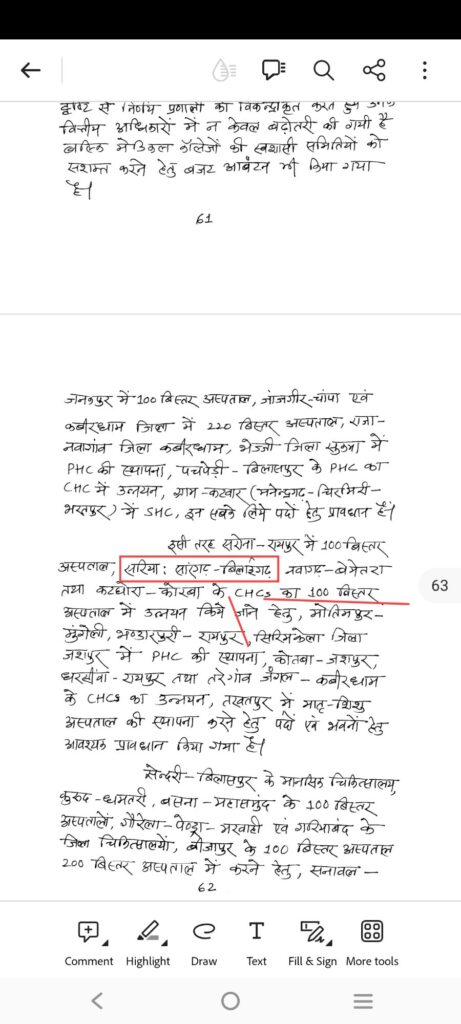 दृष्टि से निर्णय प्रणाली को विकेन्द्रीकृत करते हुये उनके
वित्तीय अधिकारों में न केवल बढ़ोतरी की गयी है
बल्कि मेडिकल कॉलेजों की स्वशासी समितियों को
सशक्त करने हेतु बजट आबंटन भी किया गया
है।
61
जनकपुर में 100 बिस्तर अस्पताल, जांजगीर-चांपा एवं
कबीरधाम जिला में 220 बिस्तर अस्पताल, राजा-
नवागांव जिला कबीरधाम, भेज्जी जिला सुकमा में
PHC की स्थापना, पचपेड़ी - बिलासपुर के PHC का
CHC में उन्नयन, ग्राम-कछार (मनेन्द्रगढ़-चिरमिरी-
भरतपुर) में SHC, इन सबके लिये पदों हेतु प्रावधान है।
इसी तरह सरोना-रायपुर में 100 बिस्तर
अस्पताल, सरिया: सारंगढ़-बिलाईगढ़, नवागढ़-बेमेतरा
तथा कटघोरा-कोरबा के CHCs का 100 बिस्तर
अस्पताल में उन्नयन किये जाने हेतु, मोतिमपुर-
मुंगेली, भण्डारपुरी-रायपुर, सिरिमकेला जिला
जशपुर में PHC की स्थापना, कोतबा-जशपुर,
धरसींवा-रायपुर तथा तरेगांव जंगल-कबीरधाम
के CHCs का उन्नयन, तखतपुर में मातृ-शिशु
अस्पताल की स्थापना करने हेतु पदों एवं भवनों हेतु
आवश्यक प्रावधान किया गया है।
63
सेन्दरी-बिलासपुर के मानसिक चिकित्सालय,
कुरुद-धमतरी, बसना-महासमुंद के 100 बिस्तर
अस्पतालों, गौरेला-पेण्ड्रा-मरवाही एवं गरियाबंद के
जिला चिकित्सालयों, बीजापुर के 100 बिस्तर अस्पताल
200 बिस्तर अस्पताल में करने हेतु, सनावल -
62
Comment Highlight Draw Text Fill & Sign More tools